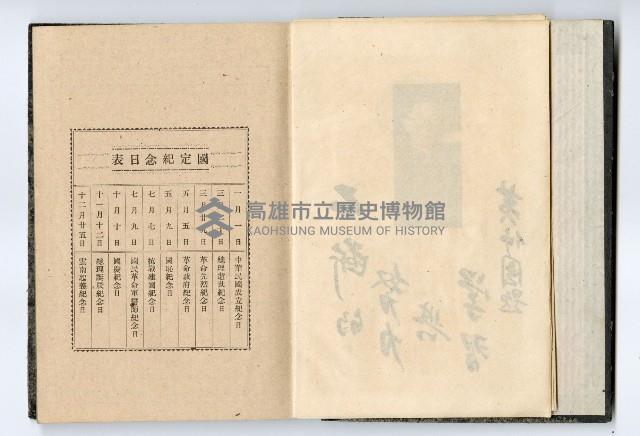 國定紀念日表
一月一日 中華民國成立紀念日
三月十二日 總理逝世紀念日
三月廿九日 革命先烈紀念日
五月五日 革命政府紀念日
五月九日 國恥紀念日
七月七日 抗戰建國紀念日
七月九日 國民革命軍誓師紀念日
十月十日 國慶紀念日
十一月十二日 總理誕辰紀念日
十二月廿五日 雲南起義紀念日
高雄市立歷史博物館
KAOHSIUNG MUSEUM OF HISTORY